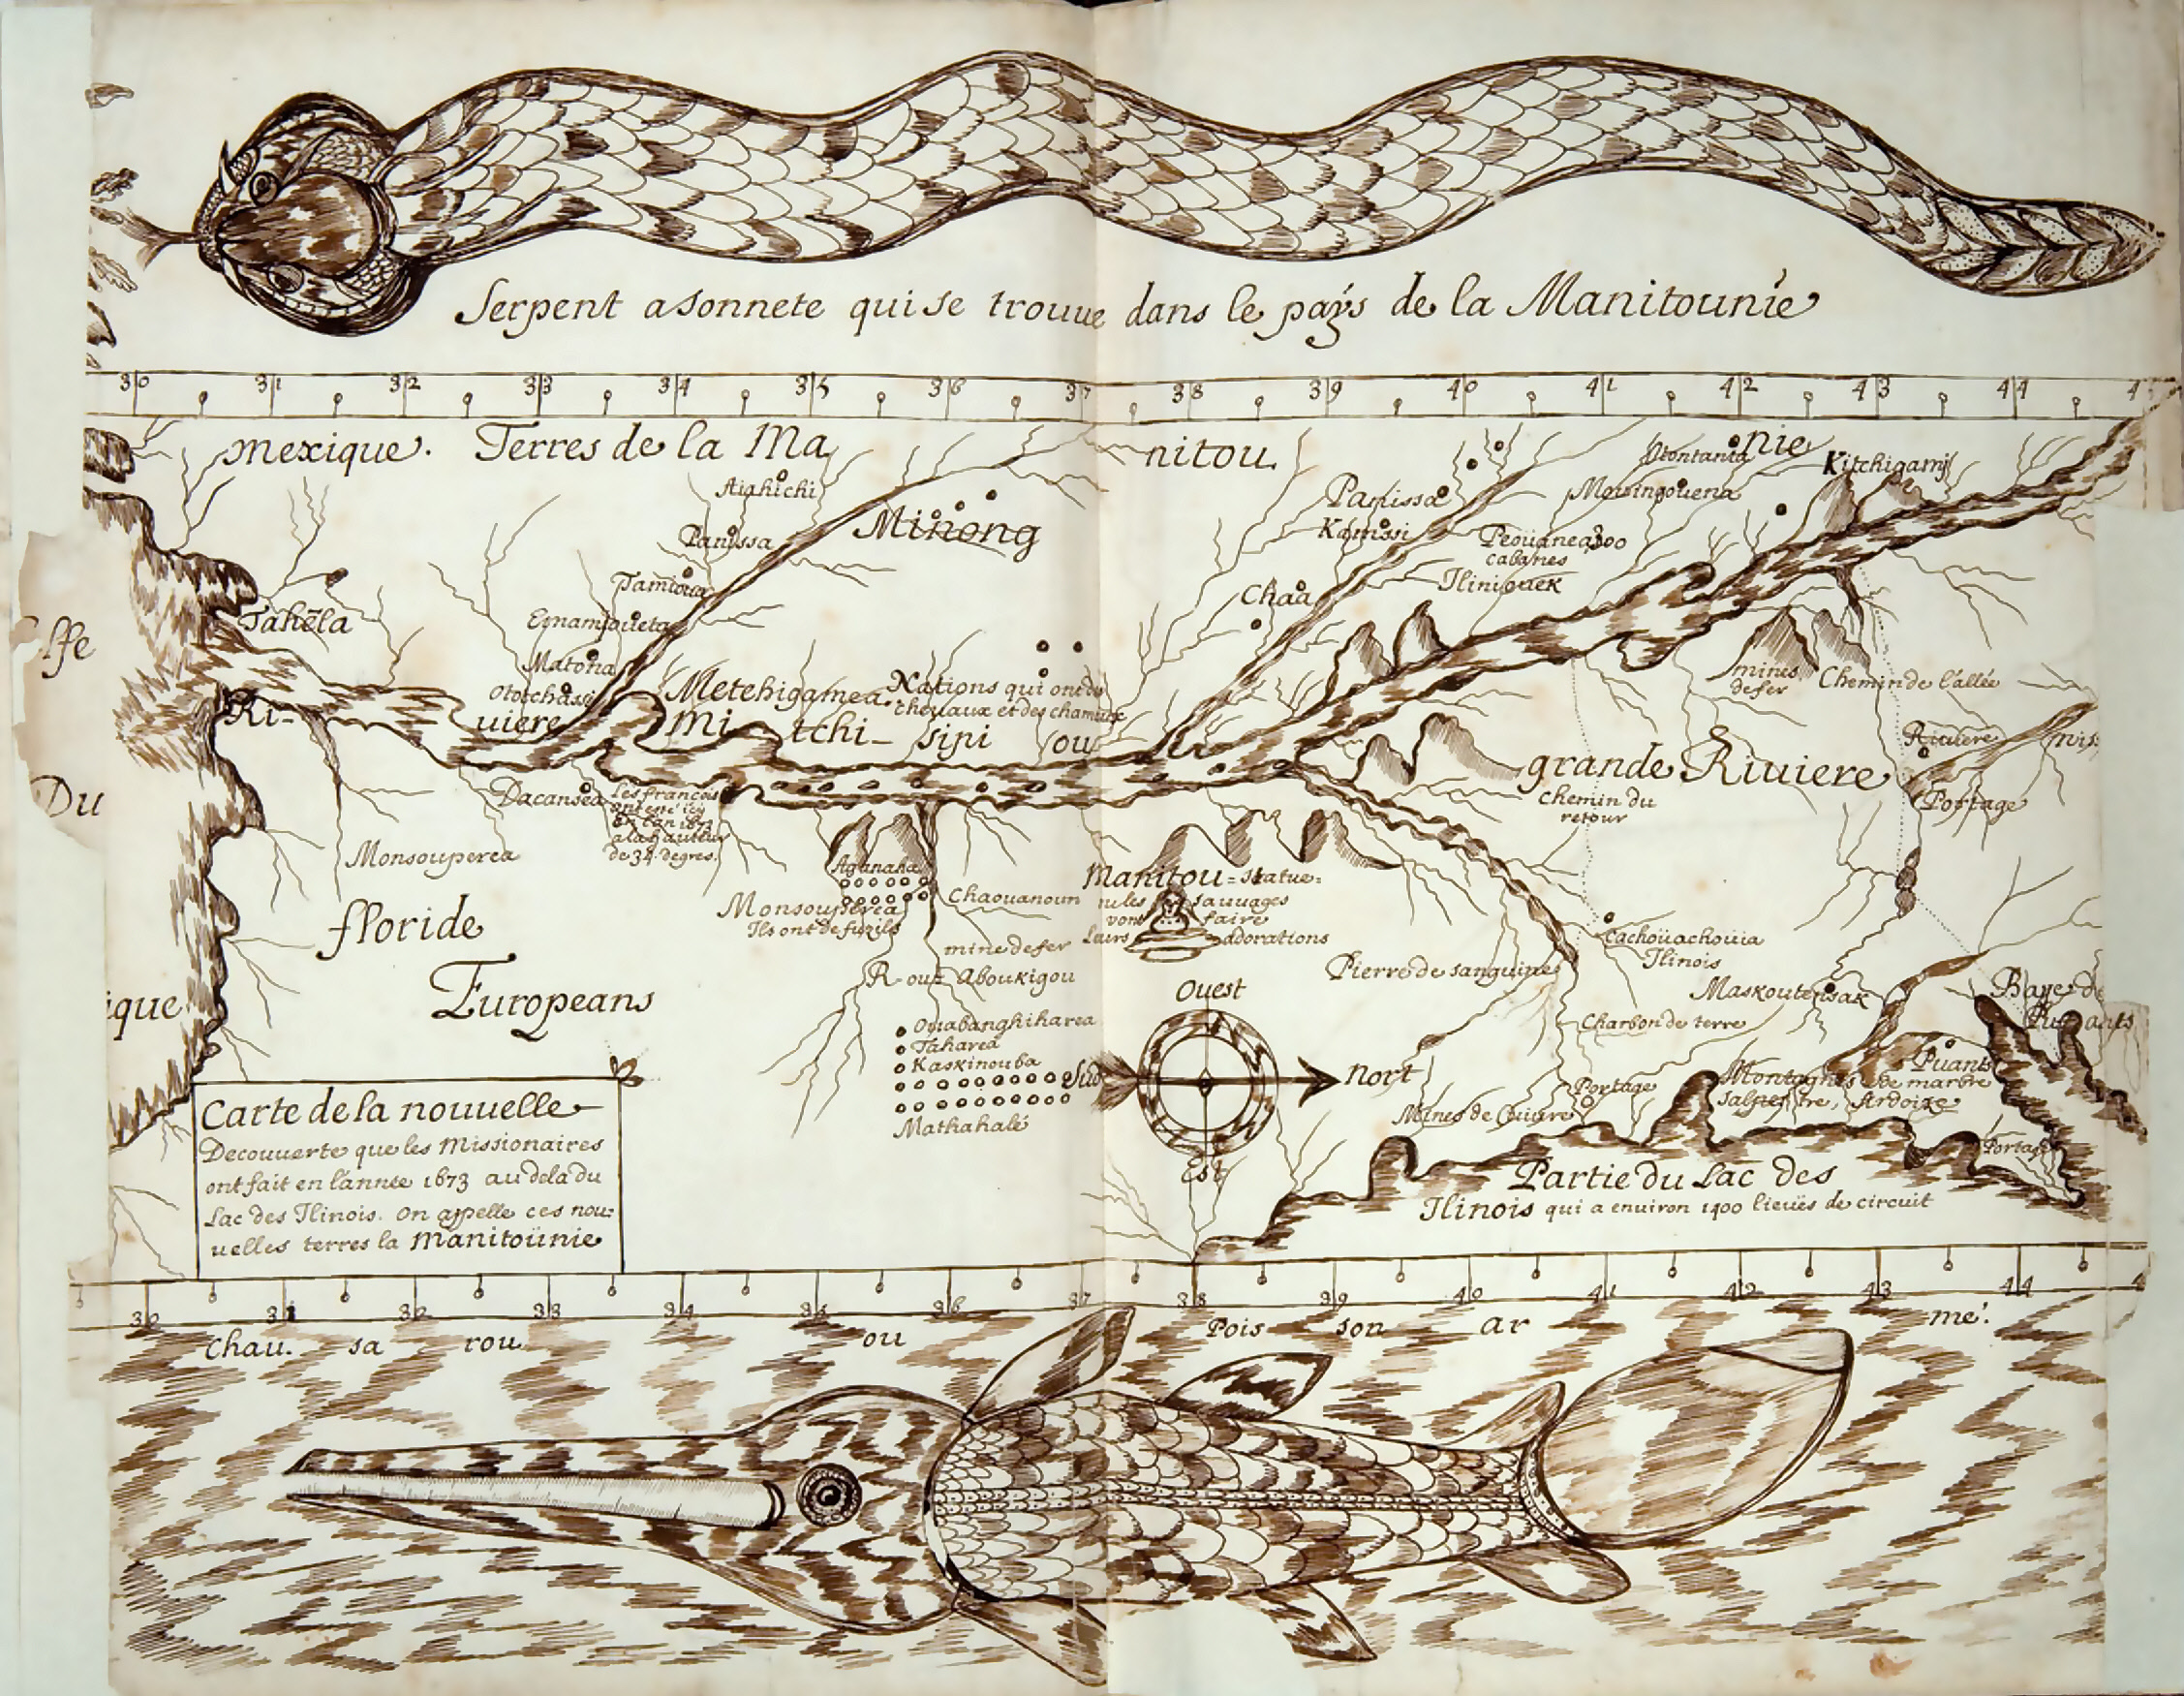 Serpent asonnete qui se trouue dans le païs de la Manitounie
30 31 32 33 34 35 36 37 38 39 40 41 42 43 44
mexique. Terres de la Ma nitou nie
Kitchigamj
Otontanta
Aiahichi
Panissa
Mouingouena
Minong
Kamissi
Panissa
Peoüanea 300
cabanes
Ilinioüek
Tamioua
Chaa
Tahēla
Emamioueta
Matoha
Ototchassi
Metchigamea
Nations qui ont des
cheuaux et des chameux
mines
de fer
Chemin de l'allée
Ri- uiere Mi- tchi- sipi ou grande Riuiere
Riuiere Mis:
Portage
chemin du
retour
Dacansea
Les francois
ont esté icy
en l'an 1673
a la hauteur
de 34 degres.
Monsouperea
Aganaha
Monsouperea
Ils ont de fusils
Chaouanoun
mine de fer
Manitou = statue=
ou les sauuages
vont faire
leurs adorations
floride
Cachoüachoüia
Ilinois
Pierre de sanguine
Aboukigou
Europeans
Maskoutensak
Baye de
Puants
Charbon de terre
Ouabanghiharea
Taharea
Kaskinouba
Mathahalé
Ouest
Sud
Nort
Est
Puants
Montagnes de marbre
Salpestre, Ardoize
Portage
Mines de Cuiure
Portage
Partie du Lac des
Ilinois qui a enuiron 1400 lieuës de circuit
ffe
Du
ique
Carte de la nouuelle
Decouuerte que les Missionaires
ont fait en l'année 1673 au dela du
Lac des Ilinois. on appelle ces nou:
uelles terres la Manitoünie
30 31 32 33 34 35 36 37 38 39 40 41 42 43 44
Chau. sa rou ou Pois son ar mé.